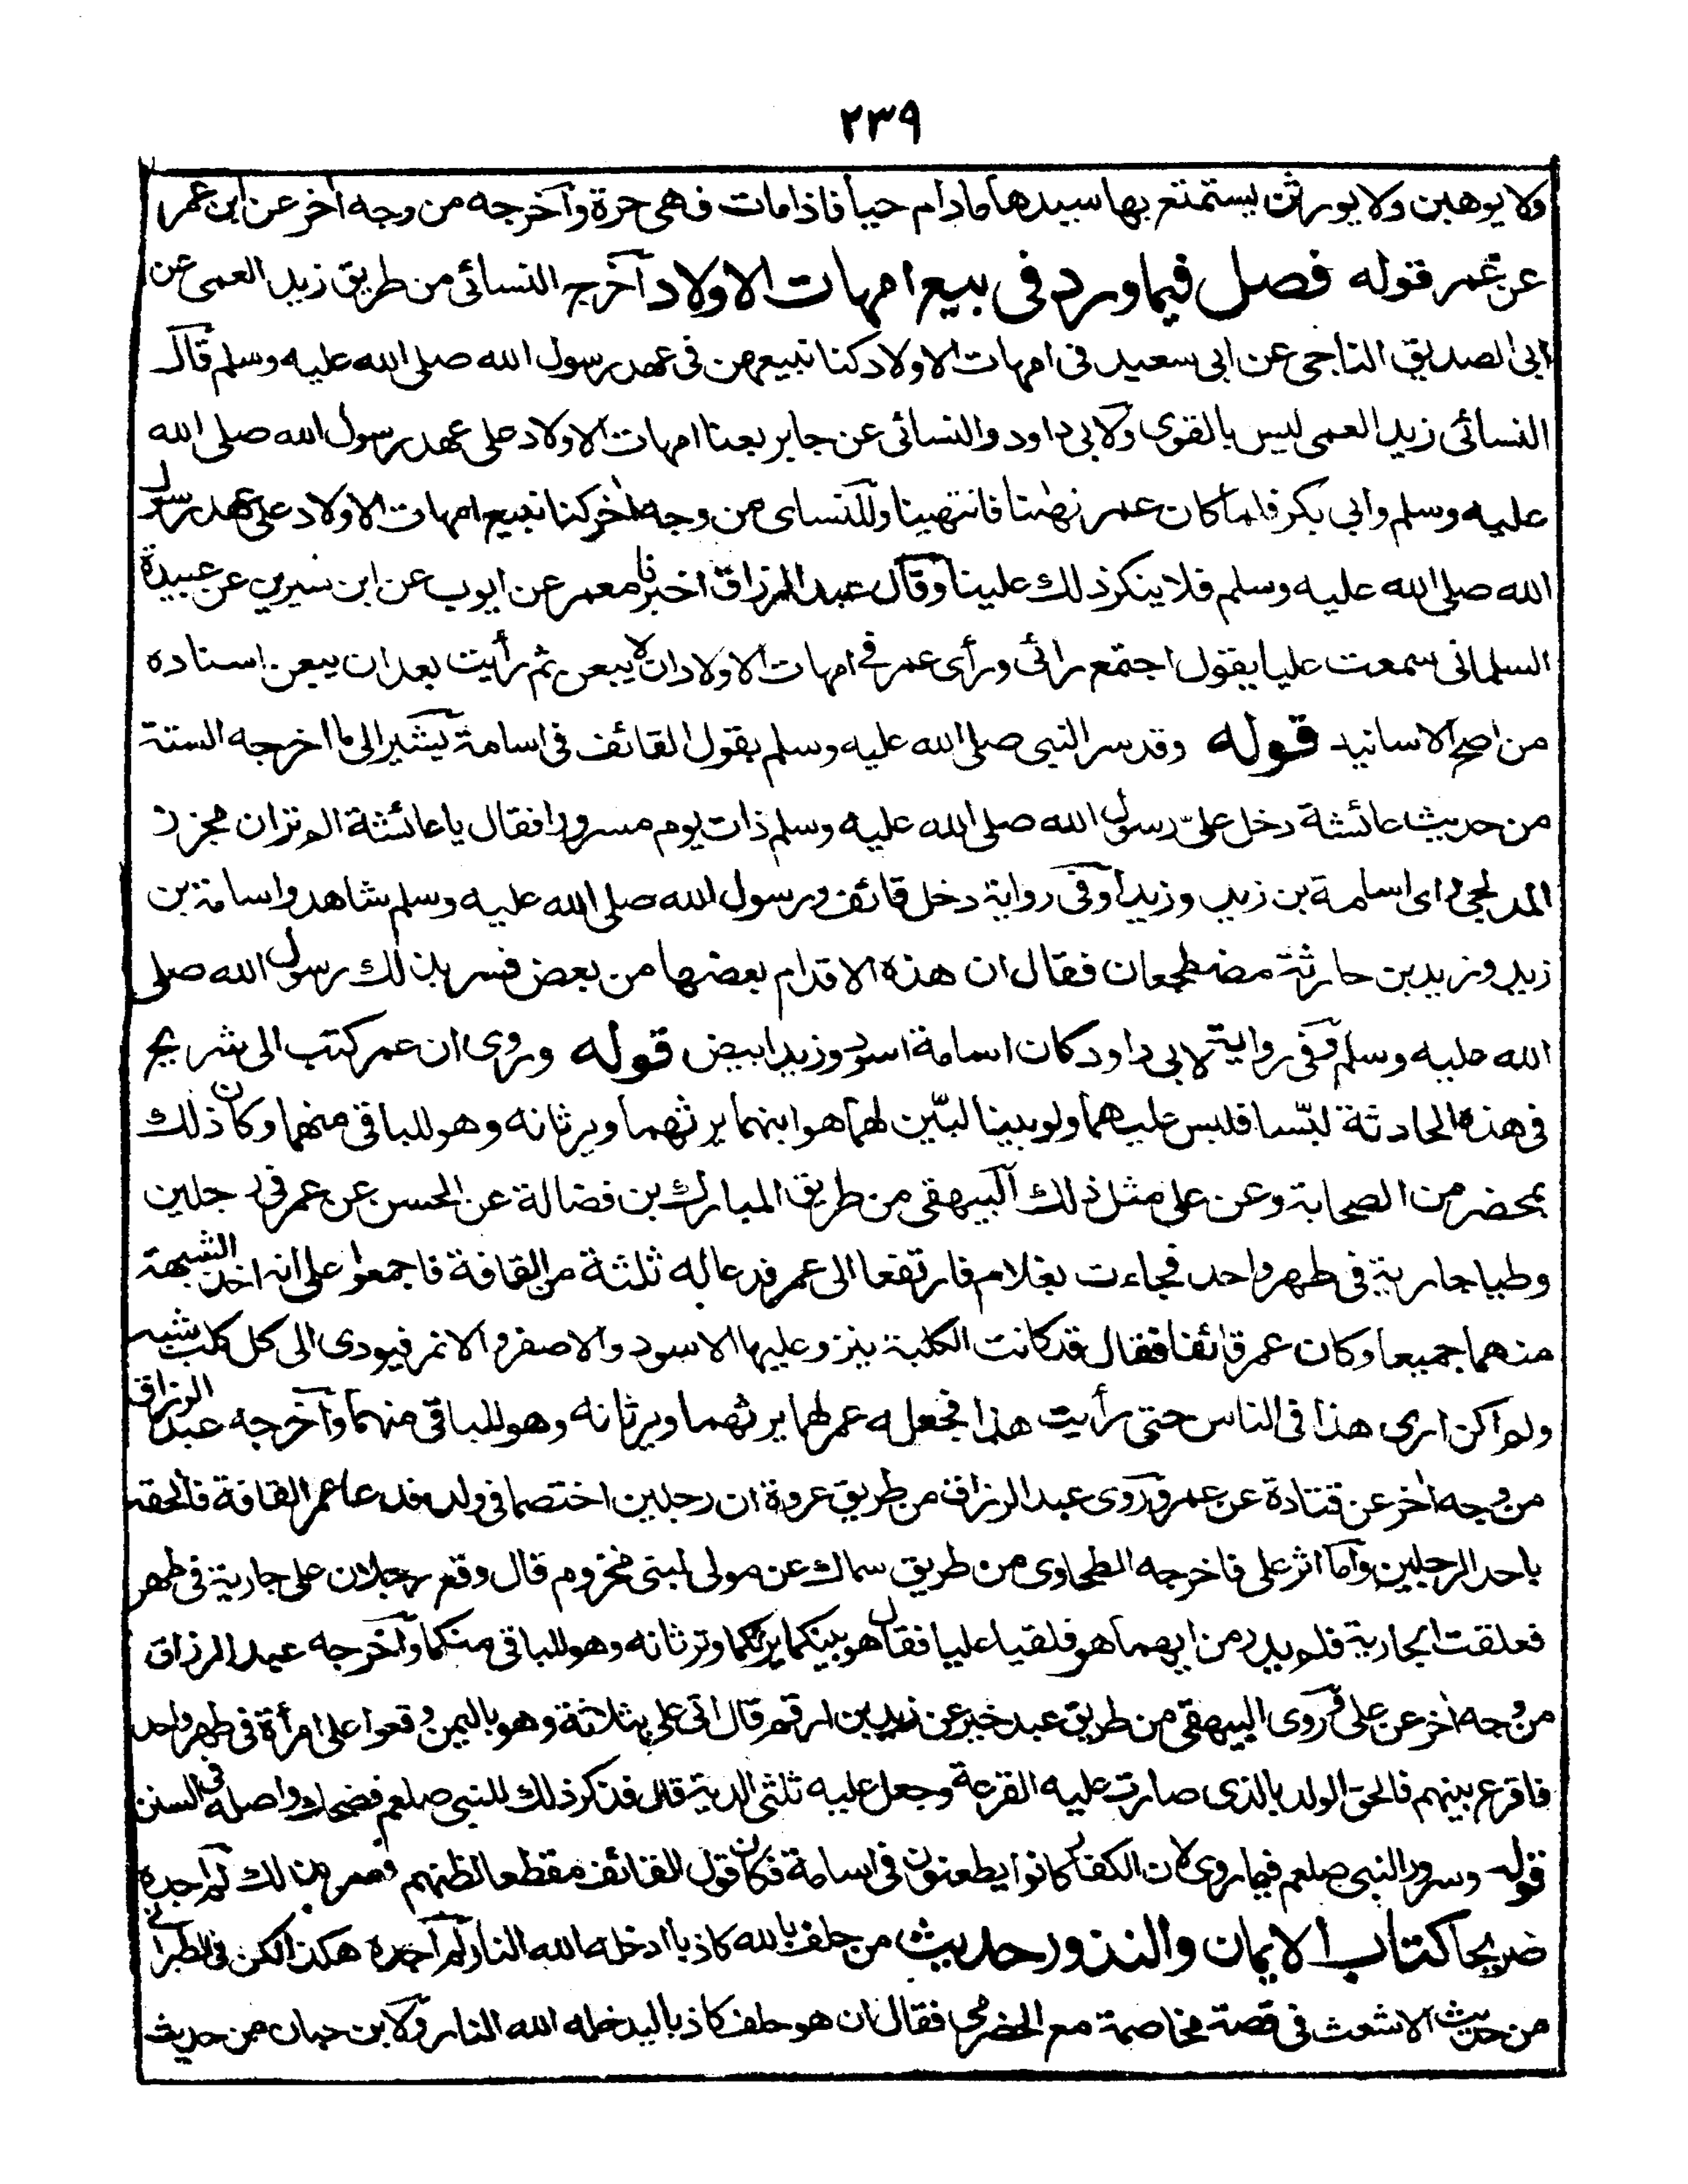 ٢٣٩
ولا يوهبن ولا يورثن يستمتع بها سيدها مادام حيا فاذا مات فهى حرة وآخرجه من وجه اخر عن ابن عمر
عن عمر قوله فصل فيما ورد فى بيع امهات الاولاد آخرج النسائى من طريق زيد العمى عن
ابى الصديق الناجى عن ابى سعيد فى امهات الاولاد كنا نبيعهن فى عهد رسول الله صلى الله عليه وسلم قال
النسائى زيد العمى ليس بالقوى ولابى داود والنسائى عن جابر بعنا امهات الاولاد على عهد رسول الله صلى الله
عليه وسلم وابى بكر فلما كان عمر نهٰنا فانتهينا وللنساى من وجه اخر كنا نبيع امهات الاولاد على عهد رسول
الله صلى الله عليه وسلم فلا ينكر ذلك علينا وقال عبد الرزاق اخبرنا معمر عن ايوب عن ابن سيرين عن عبيدة
السلمانى سمعت عليا يقول اجتمع رائى ورأى عمر فى امهات الاولاد ان لا يبعن ثم رأيت بعد ان يبعن اسناده
من اصح الاسانيد قوله وقد سر النبى صلى الله عليه وسلم بقول القائف فى اسامة يشير الى ما اخرجه الستة
من حديث عائشة دخل علىّ رسول الله صلى الله عليه وسلم ذات يوم مسرورا فقال يا عائشة الم ترى ان مجزز
المدلجى راى اسامة بن زيد وزيدا وفى رواية دخل قائف ورسول الله صلى الله عليه وسلم شاهد واسامة بن
زيد وزيد بن حارثة مضطجعان فقال ان هذه الاقدام بعضها من بعض فسر بذلك رسول الله صلى
الله عليه وسلم وفى رواية لابى داود كان اسامة اسود وزيد ابيض قوله وروى ان عمر كتب الى شريح
فى هذه الحادثة لبّسا فلبس عليهما ولو بينا لبّين لهما هو ابنهما يرثهما ويرثانه وهو للباقى منهما وكان ذلك
بمحضر من الصحابة وعن على مثل ذلك آلبيهقى من طريق المبارك بن فضالة عن الحسن عن عمر فى رجلين
وطيا جارية فى طهر واحد فجاءت بغلام فارتفعا الى عمر فدعا له ثلثة من القافة فاجمعوا على انه اخذ الشبهة
منهما جميعا وكان عمر قائفا فقال قد كانت الكلبة ينزو عليها الاسود والاصفر والانمر فيودى الى كل كلب شبهه
ولم اكن ارى هذا فى الناس حتى رأيت هذا فجعله عمر لهما يرثهما ويرثانه وهو للباقى منهما وآخرجه عبد الرزاق
من وجه اخر عن قتادة عن عمر وروى عبد الرزاق من طريق عروة ان رجلين اختصما فى ولد فدعا عمر القافة فالحقه
باحد الرجلين وآما اثر على فاخرجه الطحاوى من طريق سماك عن مولى لبنى مخزوم قال وقع رجلان على جارية فى طهر
فعلقت الجارية فلم يدر من ايهما هو فلقيا عليا فقال هو بينكما يرثكما وترثانه وهو للباقى منكما وآخرجه عبد الرزاق
من وجه اخر عن على وروى البيهقى من طريق عبد خير عن زيد بن ارقم قال اتى على بثلاثة وهو باليمن وقعوا على امرأة فى طهر واحد
فاقرع بينهم فالحق الولد بالذى صارت عليه القرعة وجعل عليه ثلثى الدية قال فذكر ذلك للنبى صلعم فضحك واصله فى السنن
قوله وسرور النبى صلعم فيما روى لان الكفار كانوا يطعنون فى اسامة فكان قول القائف مقطعا لظنهم فسر بذلك لم اجده
صريحا كتاب الايمان والنذور حديث من حلف بالله كاذبا ادخله الله النار لم اجده هكذا لكن فى الطبرانى
من حديث الاشعث فى قصة مخاصمة مع الحضرمى فقال ان هو حلف كاذبا ليدخله الله النار ولابن حبان من حديث